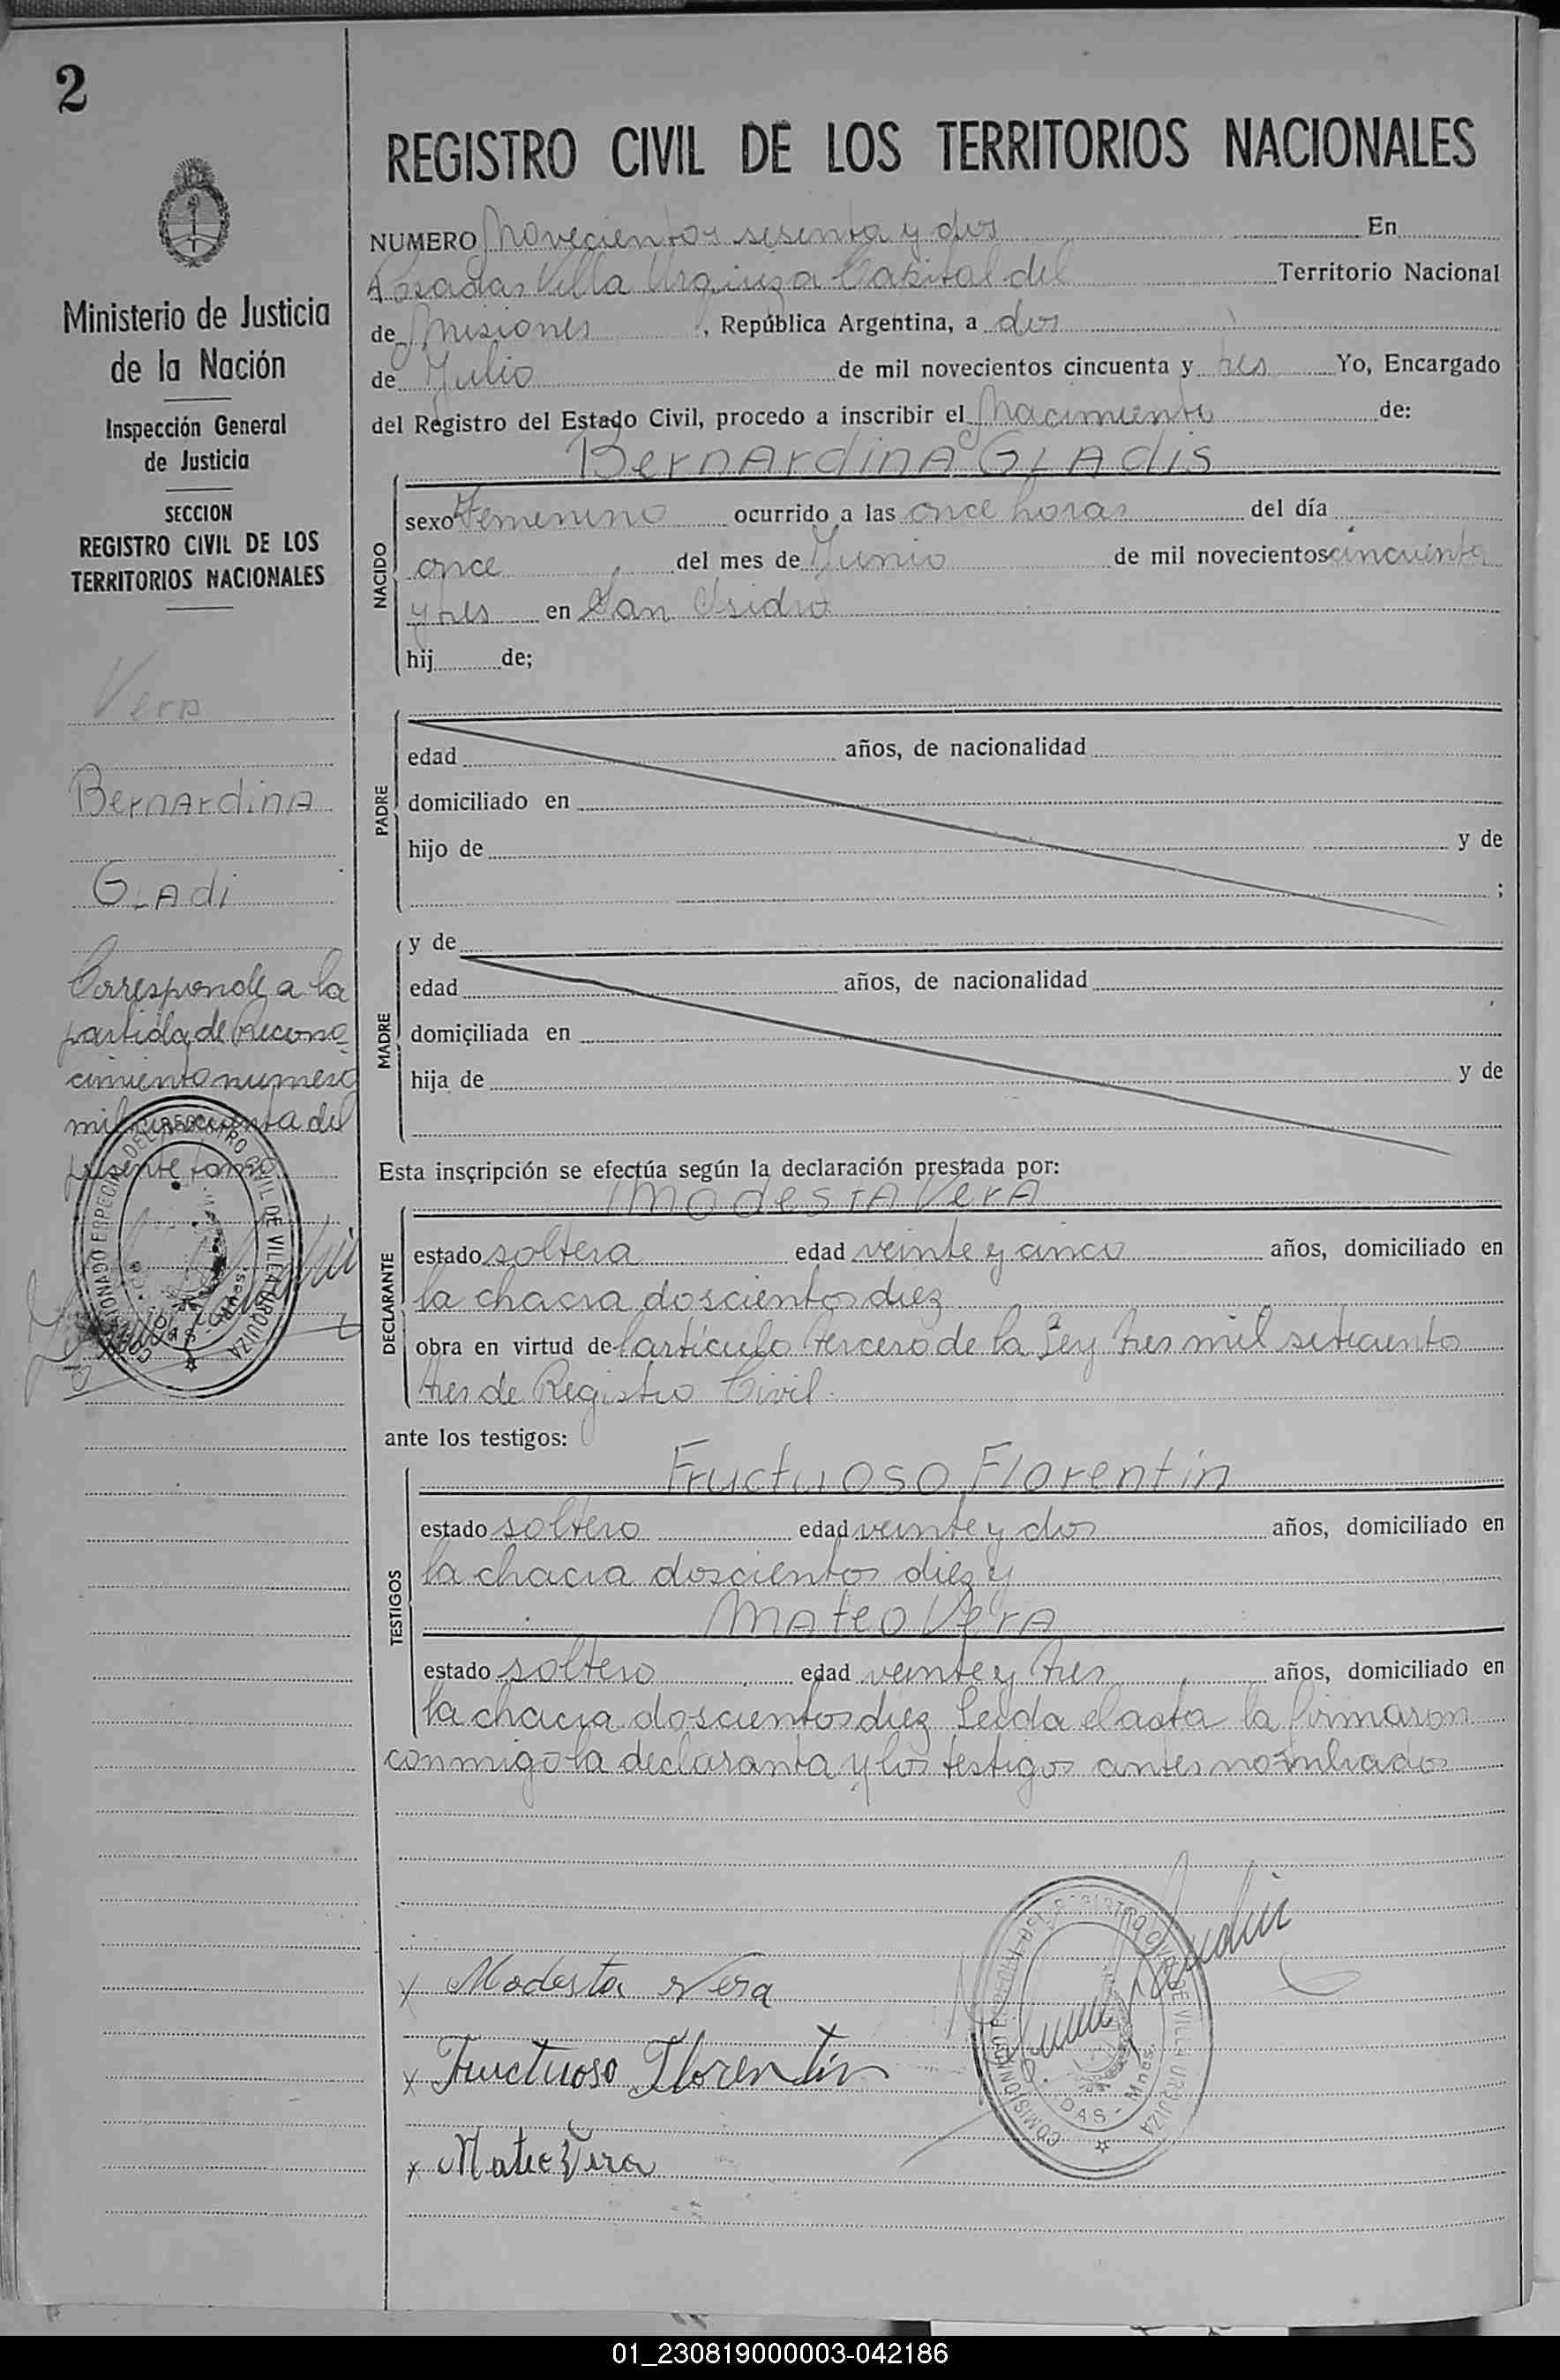 2
Ministerio de Justicia
de la Nación
Inspección General
de Justicia
SECCION
REGISTRO CIVIL DE LOS
TERRITORIOS NACIONALES
Vera
Bernardina
Gladi
Corresponde a la
partida de Recono-
cimiento numero
mil cincuenta del
presente tomo
REGISTRO CIVIL DE LOS TERRITORIOS NACIONALES
NUMERO Novecientos sesenta y dos En
Posadas Villa Urquiza Capital del Territorio Nacional
de Misiones, República Argentina, a dos
de Julio de mil novecientos cincuenta y tres Yo, Encargado
del Registro del Estado Civil, procedo a inscribir el Nacimiento de:
Bernardina Gladis
NACIDO
sexo Femenino ocurrido a las once horas del día
once del mes de Junio de mil novecientos cincuenta
y tres en San Isidro
hij de;
PADRE
edad años, de nacionalidad
domiciliado en
hijo de y de
;
MADRE
y de
edad años, de nacionalidad
domiciliada en
hija de y de
Esta inscripción se efectúa según la declaración prestada por:
Modesta Vera
DECLARANTE
estado soltera edad veinte y cinco años, domiciliado en
la chacra doscientos diez
obra en virtud de l artículo tercero de la Ley tres mil seteciento
tres de Registro Civil
ante los testigos:
Fructuoso Florentin
TESTIGOS
estado soltero edad veinte y dos años, domiciliado en
la chacra doscientos diez y
Mateo Vera
estado soltero edad veinte y tres años, domiciliado en
la chacra doscientos diez Leida el acta la firmaron
conmigo la declaranta y los testigos antes nombrados
x Modesta Vera
x Fructuoso Florentin
x Mateo Vera
COMISIONADO ESPECIAL DEL REGISTRO CIVIL DE VILLA URQUIZA
01_230819000003-042186